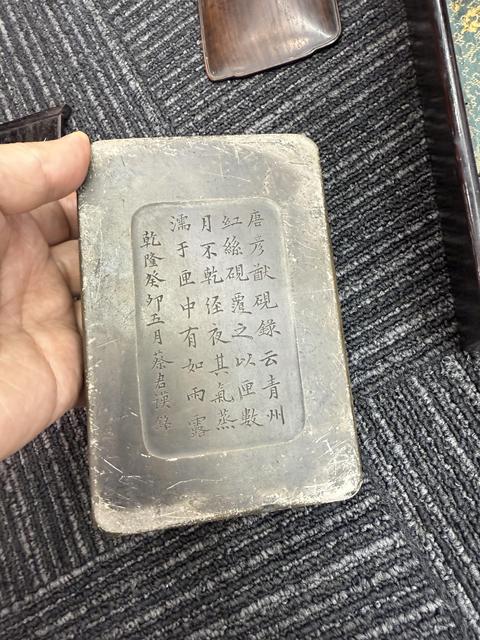 唐彦猷硯錄云青州
紅絲硯覆之以匣數
月不乾经夜其氣蒸
濡于匣中有如雨露
乾隆癸卯五月蔡君謨銘